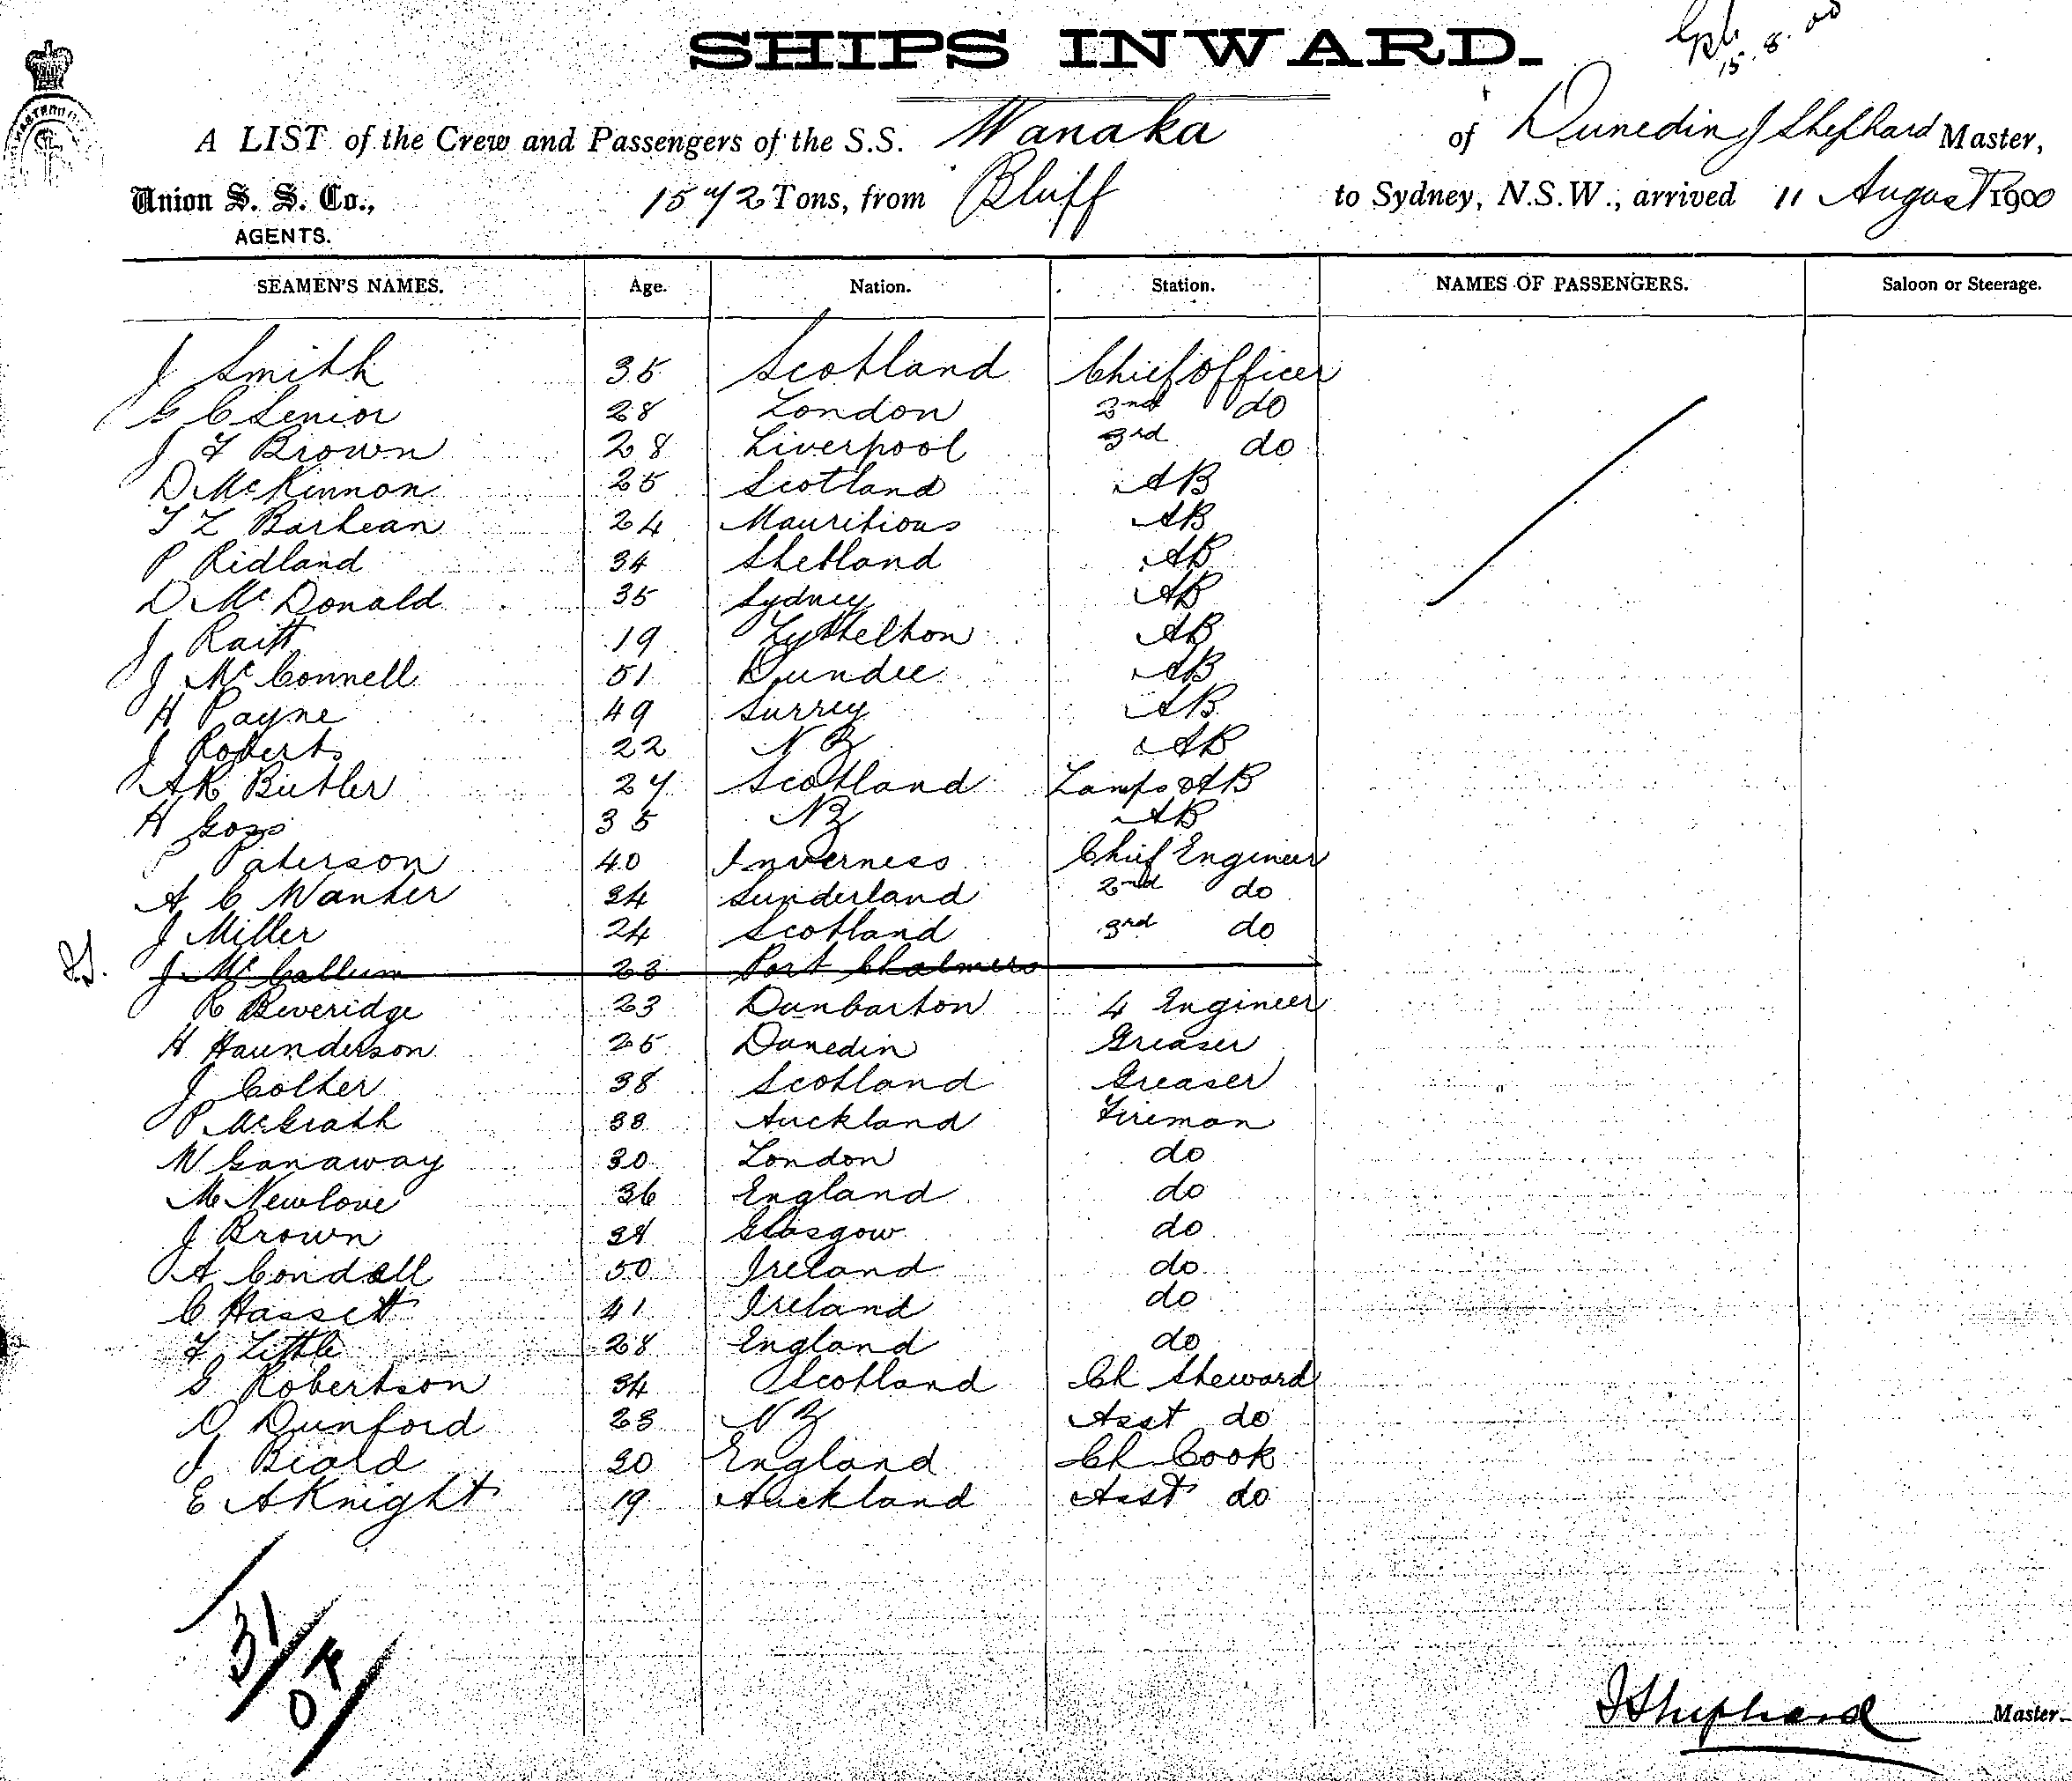 15.8.00
SHIPS INWARD.
A LIST of the Crew and Passengers of the S.S. Wanaka of Dunedin J Shephard Master,
Union S. S. Co., 1572 Tons, from Bluff to Sydney, N.S.W., arrived 11 August 1900
AGENTS.
SEAMEN'S NAMES. Age. Nation. Station. NAMES OF PASSENGERS. Saloon or Steerage.
J Smith 35 Scotland Chief Officer
G C Senior 28 London 2nd do
J F Brown 28 Liverpool 3rd do
D McKinnon 25 Scotland AB
24 Mauritious AB
P Ridland 34 Shetland AB
D McDonald 35 Sydney AB
J Raitt 19 Lyttelton AB
J McConnell 51 Dundee AB
H Payne 49 Surrey AB
J Roberts 22 NZ AB
AR Butler 27 Scotland Lamps & AB
H Goss 35 NZ AB
P Paterson 40 Inverness Chief Engineer
A C Wanter 34 Sunderland 2nd do
J Miller 24 Scotland 3rd do
J.S. J McCallum 23 Port Chalmers
R Beveridge 23 Dunbarton 4 Engineer
H Haunderson 25 Dunedin Greaser
J Colter 38 Scotland Greaser
P McGrath 33 Auckland Fireman
W Ganaway 30 London do
M Newlove 36 England do
J Brown 34 Glasgow do
A Condall 50 Ireland do
C Hassett 41 Ireland do
F Little 28 England do
G Robertson 34 Scotland Ch Steward
O Dunford 23 NZ Asst do
J Biald 30 England Ch Cook
E A Knight 19 Auckland Asst do
31
OK
J Shephard Master.